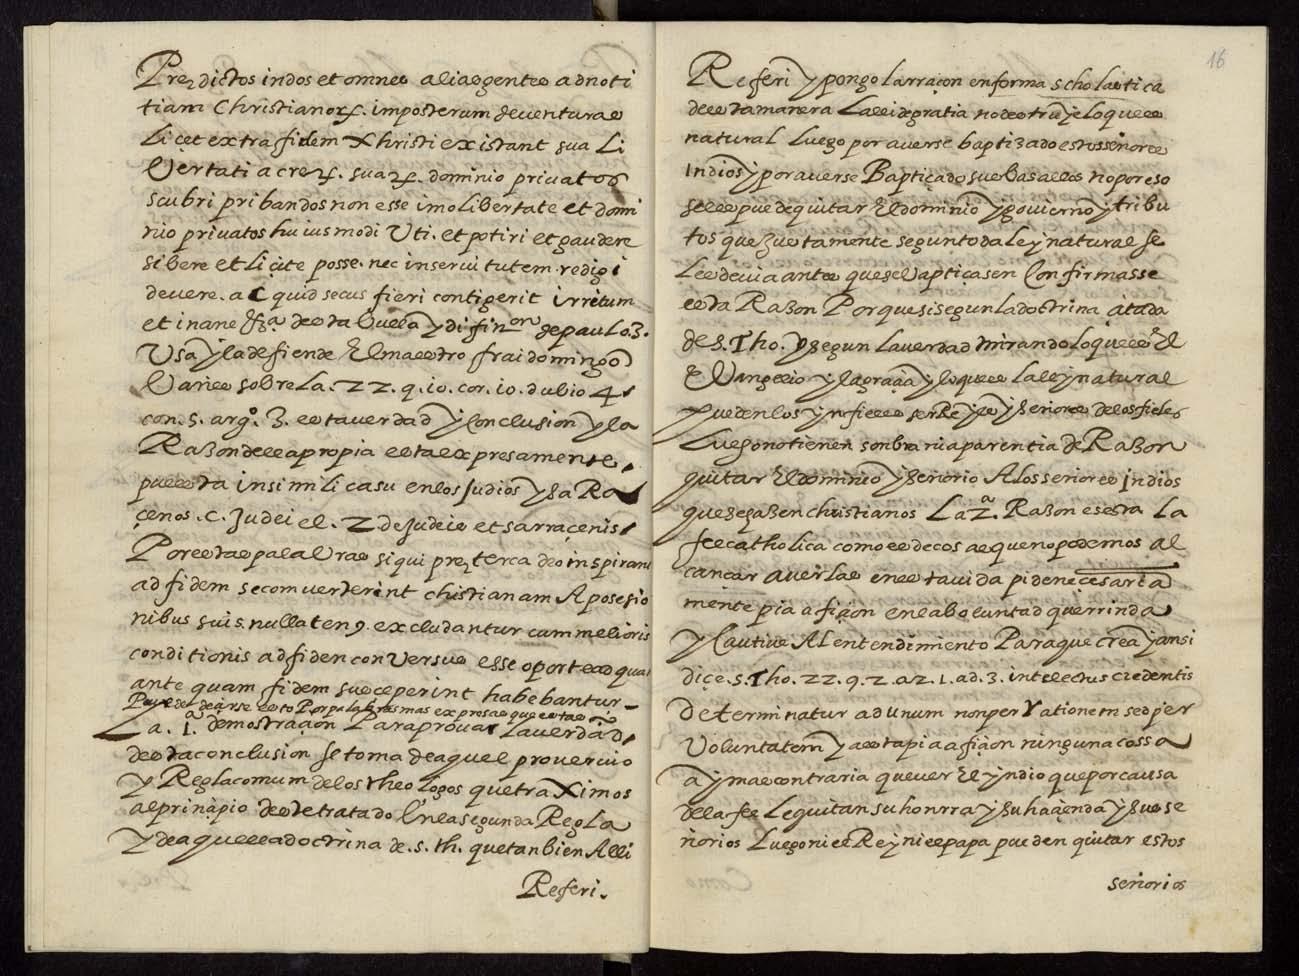 Prezdictos indos et omnes alias gentes ad noti
tiam Christianorꝝ. imposterum deventuras
Liçet extra fidem Xhristi existant sua Li
Vertati ac rerꝝ. suarꝝ. dominio privatos
seu bri pribandos non esse imo libertate et domi
nio privatos huiusmodi Uti. et potiri et gaudere
Libere et Liçite posse. nec in servitutem. redigi
devere. ac quid secus fieri contigerit irritum
et inane. desta bulla y difinon de paulo 3.
Usa y la defiende El maestro frai domingo
Vañes sobre la. 22. q. 10. cor. 10. dubio 4
con. 5. argo. 3. esta verdad y Conclusion y la
Razon della propia esta expresamente.
puesta in simili casu en los Judios y Sa Ra
çenos. c. Judei el. 2. de Judeis et sarraçenis
Por estas palabras si qui preztercea deo inspirante
ad fidem se comverterint christianam A posesio
nibus suis. nullaten9. excludantur cum melioris
conditionis ad fiden conversus esse oporteas quam
ante quam fidem susceperint habebantur
Puede deçirse esto Por palabras mas expresas que estas
La. 1.a demostraçion Para provar La verdad
desta conclusion se toma de aquel proverbio
y Regla comum de los theologos que traximos
al prinçipio deste tratado En la segunda Regla
y de aquella doctrina de. s. th. que tanbien Alli
Referi.
16
Referi y pongo la rraçon en forma scholastica
desta manera La lei de gratia no destruye lo que es
natural Luego por averse baptizado estos señores
Indios y por averse Baptiçado sus basallos no por eso
se les puede quitar El dominio y govierno y tribu
tos que Justamente segun toda Ley natural se
Les devia antes que se baptiçasen Confirmasse
esta Razon Porque si segun la doctrina citada
de S. Tho. y segun la verdad mirando lo que es El
EVangelio y la graçia y lo que es la ley natural
pueden los ynfieles ser Reyes y señores de los fieles
Luego no tienen sombra ni aparentia de Razon
quitar El dominio y señorio A los señores indios
que se hazen christianos La 2.a Razon es esta La
fee catholica como es de cosas que no podemos al
cançar a verlas en esta vida pide neçesaria
mente pia afiçion en la boluntad que rrinda
y Cautive Al entendimiento Para que crea y ansi
diçe. s. Tho. 22. q. 2. a2. 1. ad. 3. intelectus credentis
determinatur ad unum non per rationem sed per
Voluntatem y a esta pia afiçion ninguna cossa
ay mas contraria que ver El yndio que por causa
de la fee Le quitan su honrra y su haçienda y sus se
ñorios Luego ni el Rey ni el papa pueden quitar estos
señorios